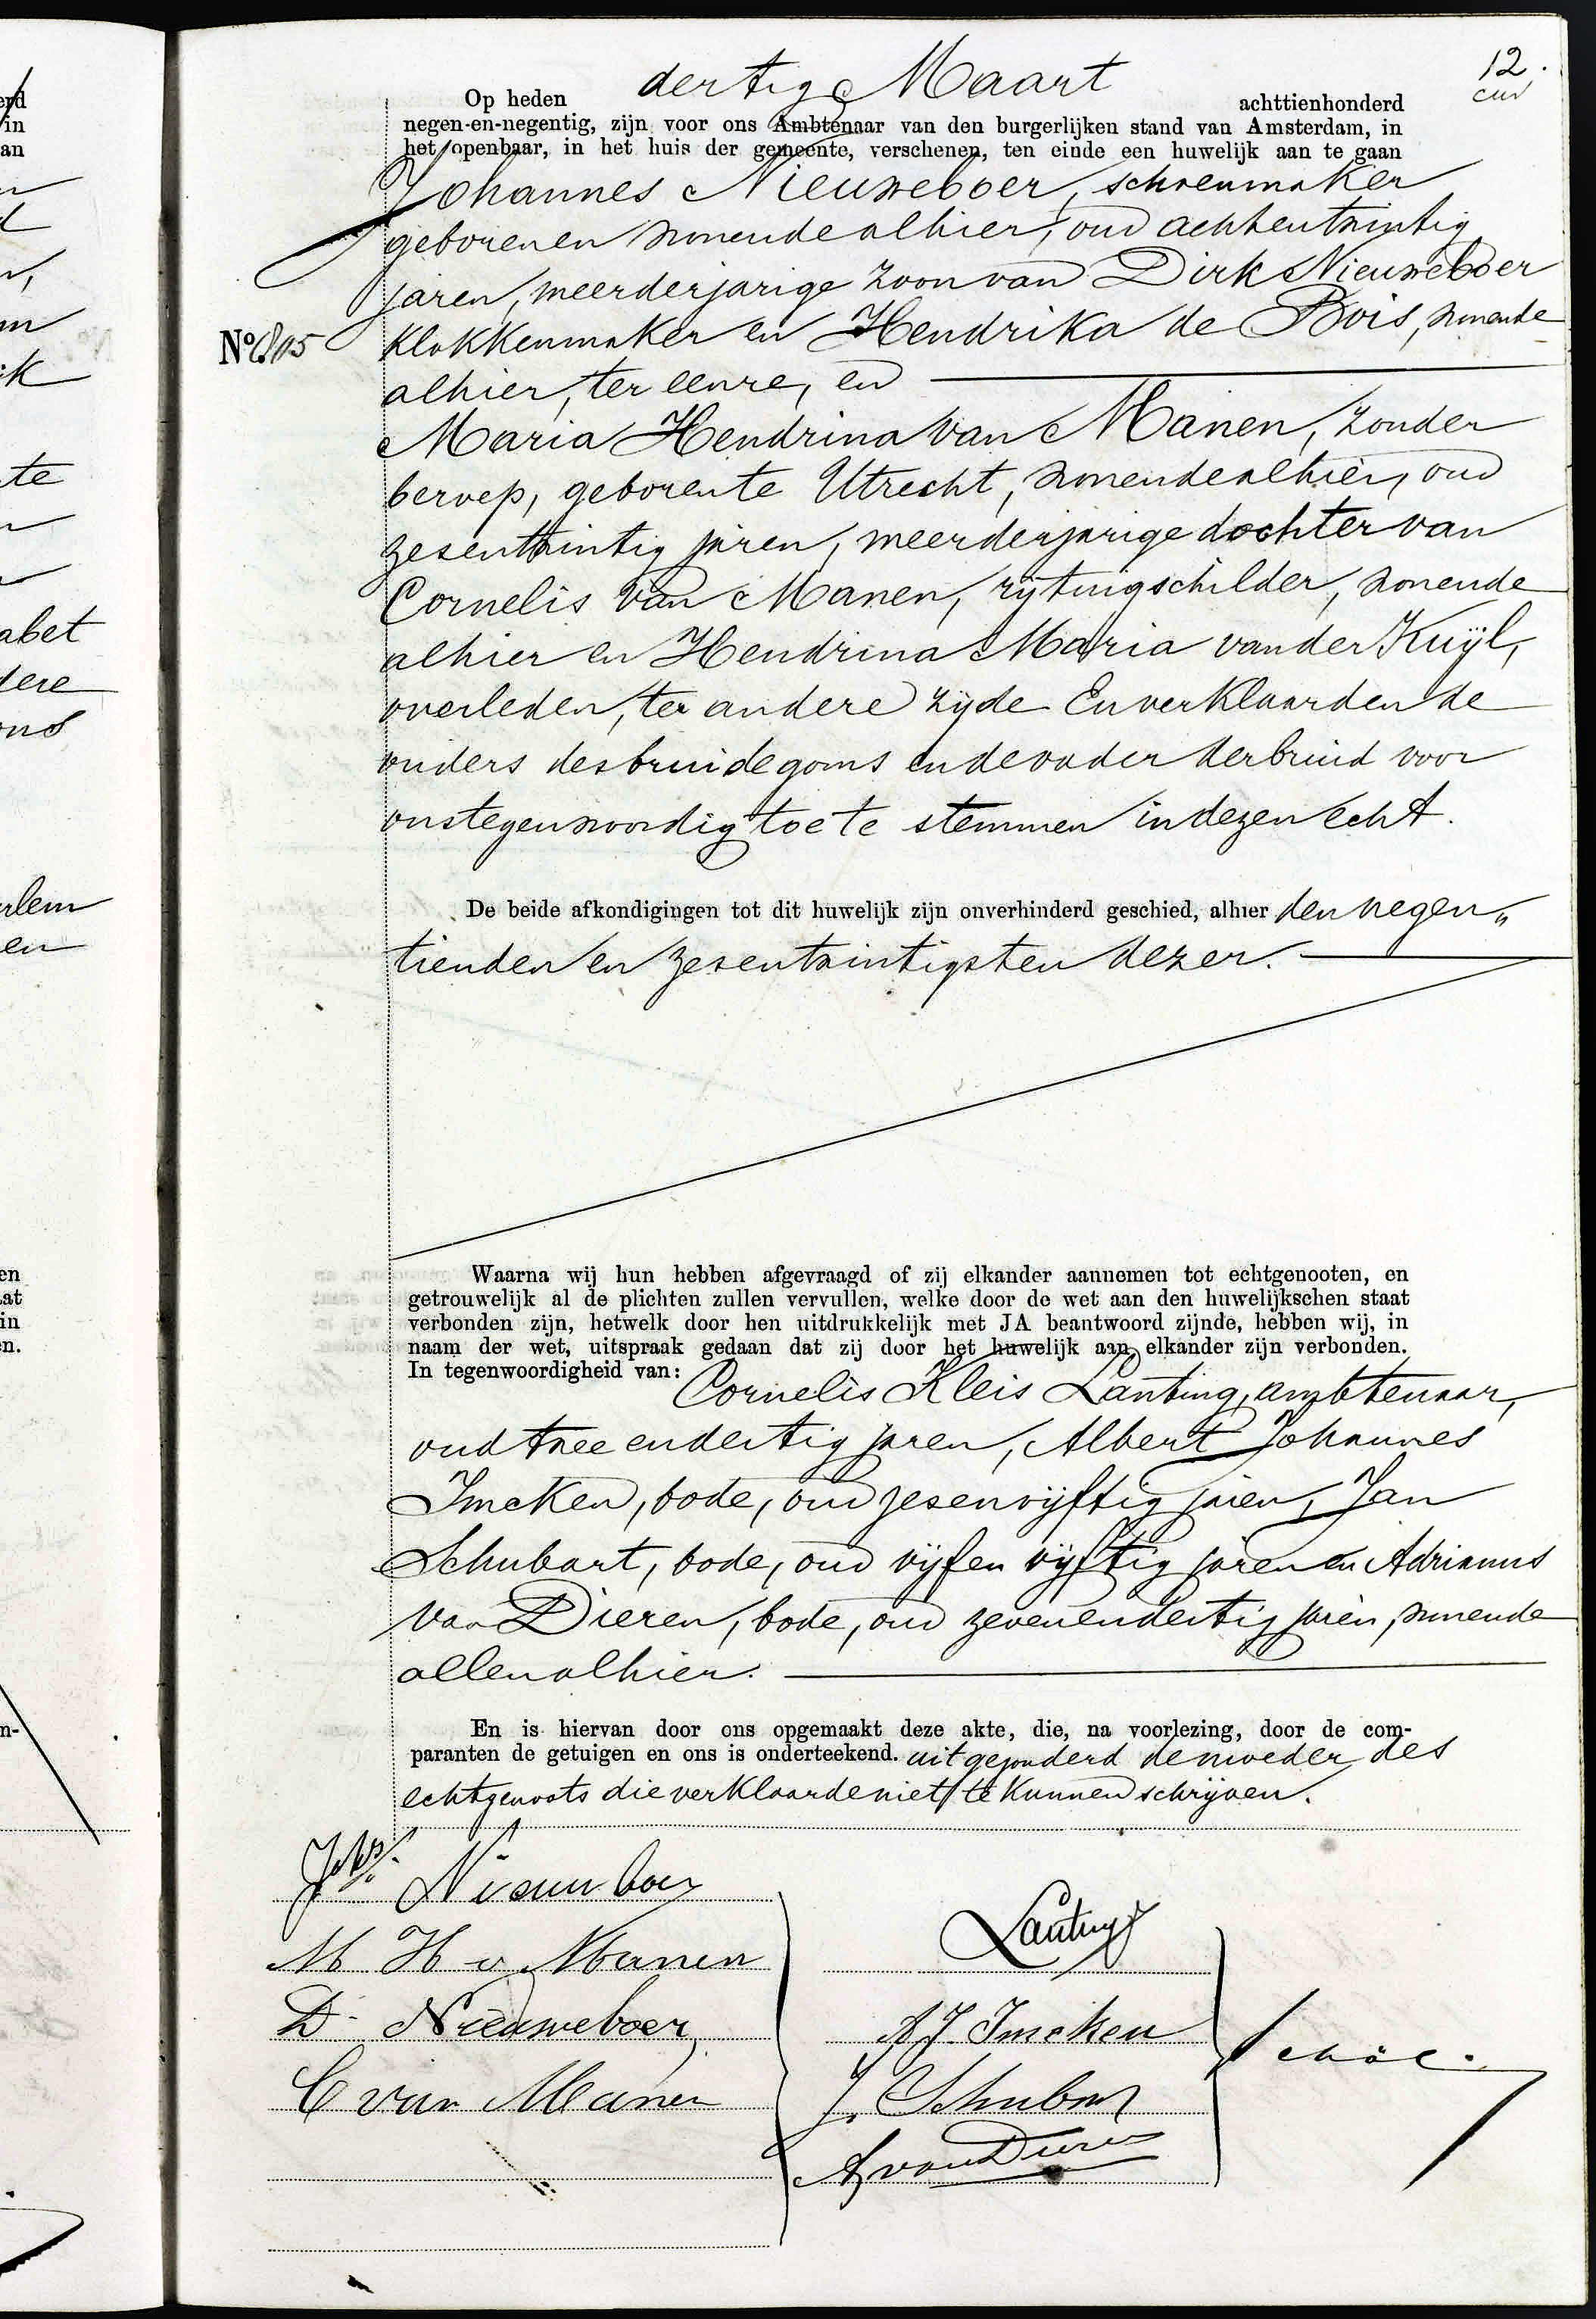 12.
Op heden dertig Maart achttienhonderd
negen-en-negentig, zijn voor ons Ambtenaar van den burgerlijken stand van Amsterdam, in
het openbaar, in het huis der gemeente, verschenen, ten einde een huwelijk aan te gaan
Johannes Nieuweboer, schoenmaker
geboren en wonende alhier, oud achtentwintig
jaren, meerderjarige zoon van Dirk Nieuweboer
No. 805 klokkenmaker en Hendrika de Bois, wonende
alhier, ter eenre, en
Maria Hendrina van Manen, zonder
beroep, geboren te Utrecht, wonende alhier, oud
zesentwintig jaren, meerderjarige dochter van
Cornelis van Manen, rijtuigschilder, wonende
alhier en Hendrina Maria van der Kuijl,
overleden, ter andere zijde En verklaarden de
ouders des bruidegoms en de vader der bruid voor
ons tegenwoordig toe te stemmen in dezen echt.
De beide afkondigingen tot dit huwelijk zijn onverhinderd geschied, alhier den negen„
tienden en zesentwintigsten dezer.
Waarna wij hun hebben afgevraagd of zij elkander aannemen tot echtgenooten, en
getrouwelijk al de plichten zullen vervullen, welke door de wet aan den huwelijkschen staat
verbonden zijn, hetwelk door hen uitdrukkelijk met JA beantwoord zijnde, hebben wij, in
naam der wet, uitspraak gedaan dat zij door het huwelijk aan elkander zijn verbonden.
In tegenwoordigheid van: Cornelis Kleis Lanting, ambtenaar,
oud twee en dertig jaren, Albert Johannes
Imcken, bode, oud zesenvijftig jaren, Jan
Schubart, bode, oud vijfen vijftig jaren en Adrianus
van Dieren, bode, oud zevenendertig jaren, wonende
allen alhier.
En is hiervan door ons opgemaakt deze akte, die, na voorlezing, door de com-
paranten de getuigen en ons is onderteekend. uitgezonderd de moeder des
echtgenoots die verklaarde niet te kunnen schrijven.
Johs. Nieuwboer
M H v Manen
D. Nieuweboer
C van Manen
Lanting
A J. Imcken
J. Schubart
A van Dieren